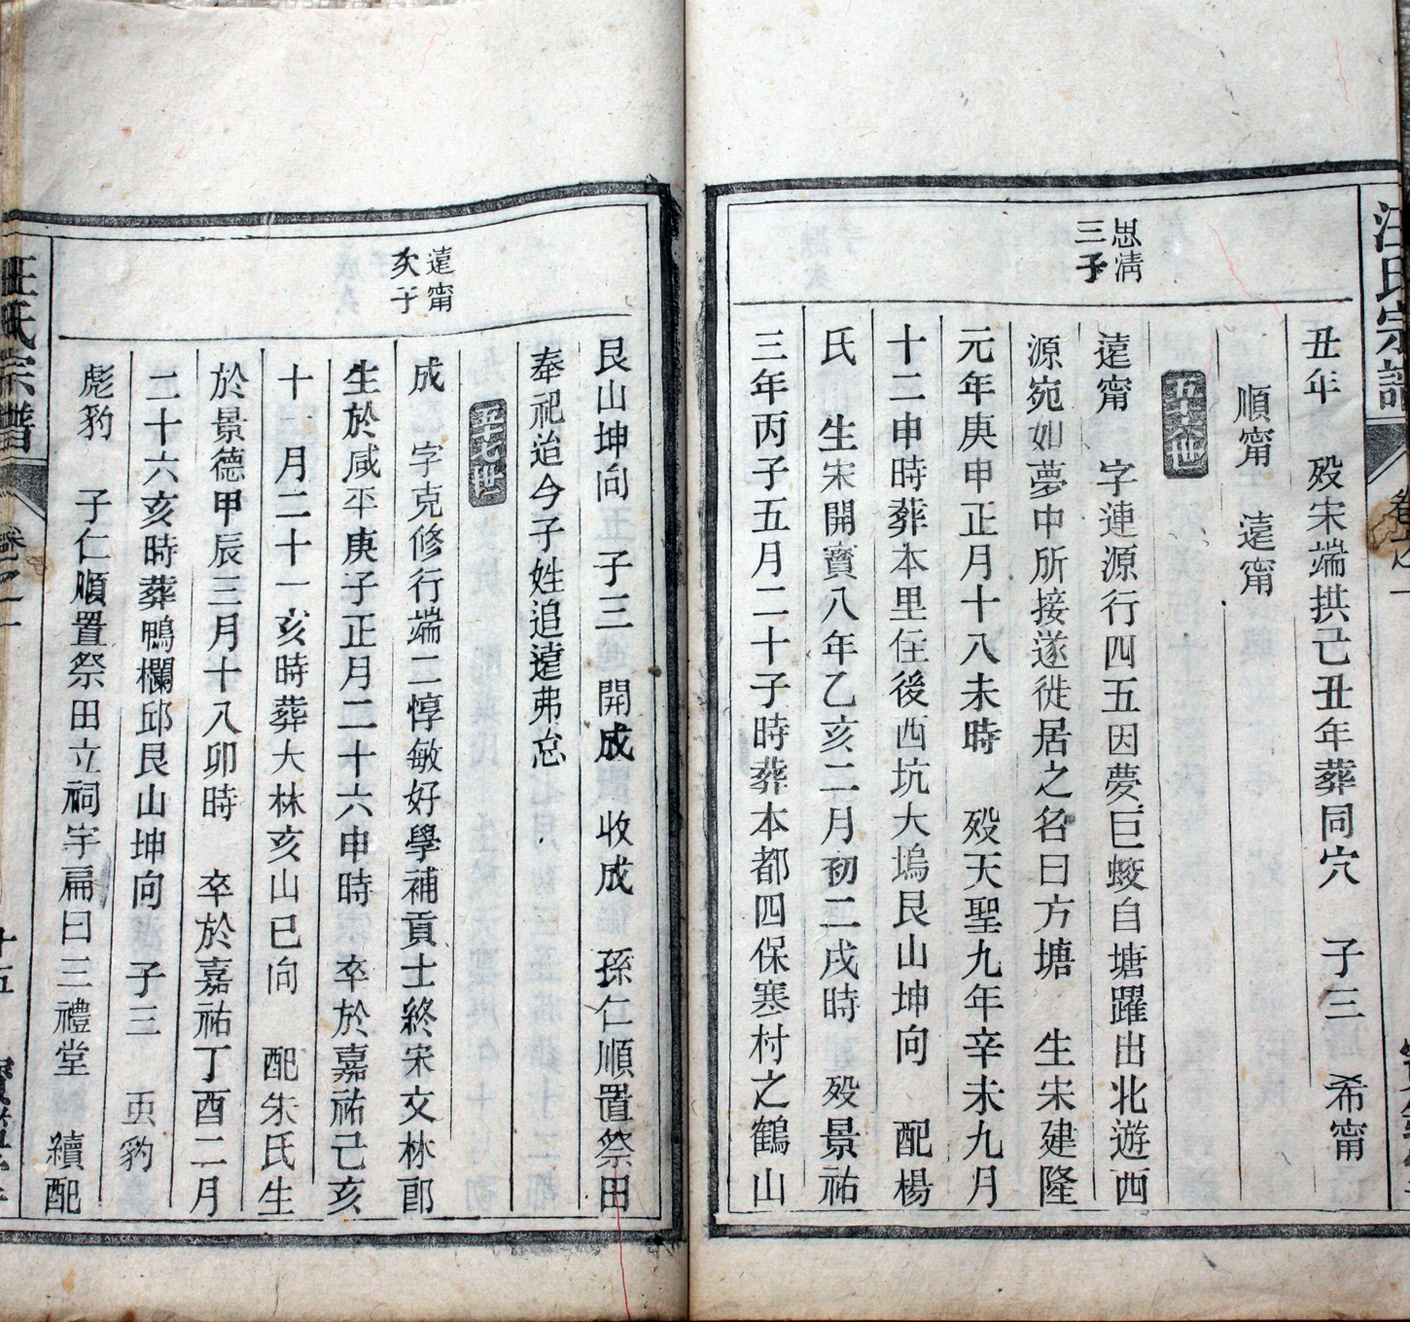 汪氏宗譜
思凊
三子
丑年　歿宋端拱己丑年葬同穴　子三　希甯
順甯　遠甯
五十六世
遠甯　字連源行四五因夢巨蛟自塘躍出北遊西
源宛如夢中所接遂徙居之名曰方塘　生宋建隆
元年庚申正月十八未時　歿天聖九年辛未九月
十二申時葬本里住後西坑大塢艮山坤向　配楊
氏　生宋開寳八年乙亥二月初二戌時　歿景祐
三年丙子五月二十子時葬本都四保寒村之鶴山
艮山坤向　子三　開成　收成　孫仁順置祭田
奉祀迨今子姓追遠弗怠
遠甯
次子
五十七世
成　字克修行端二惇敏好學補貢士終宋文林郎
生於咸平庚子正月二十六申時　卒於嘉祐己亥
十一月二十一亥時葬大林亥山巳向　配朱氏生
於景德甲辰三月十八卯時　卒於嘉祐丁酉二月
二十六亥時葬鴨欄邱艮山坤向　子三　亞豹
彪豹　子仁順置祭田立祠宇扁曰三禮堂　續配
汪氏宗譜　卷之一　十五